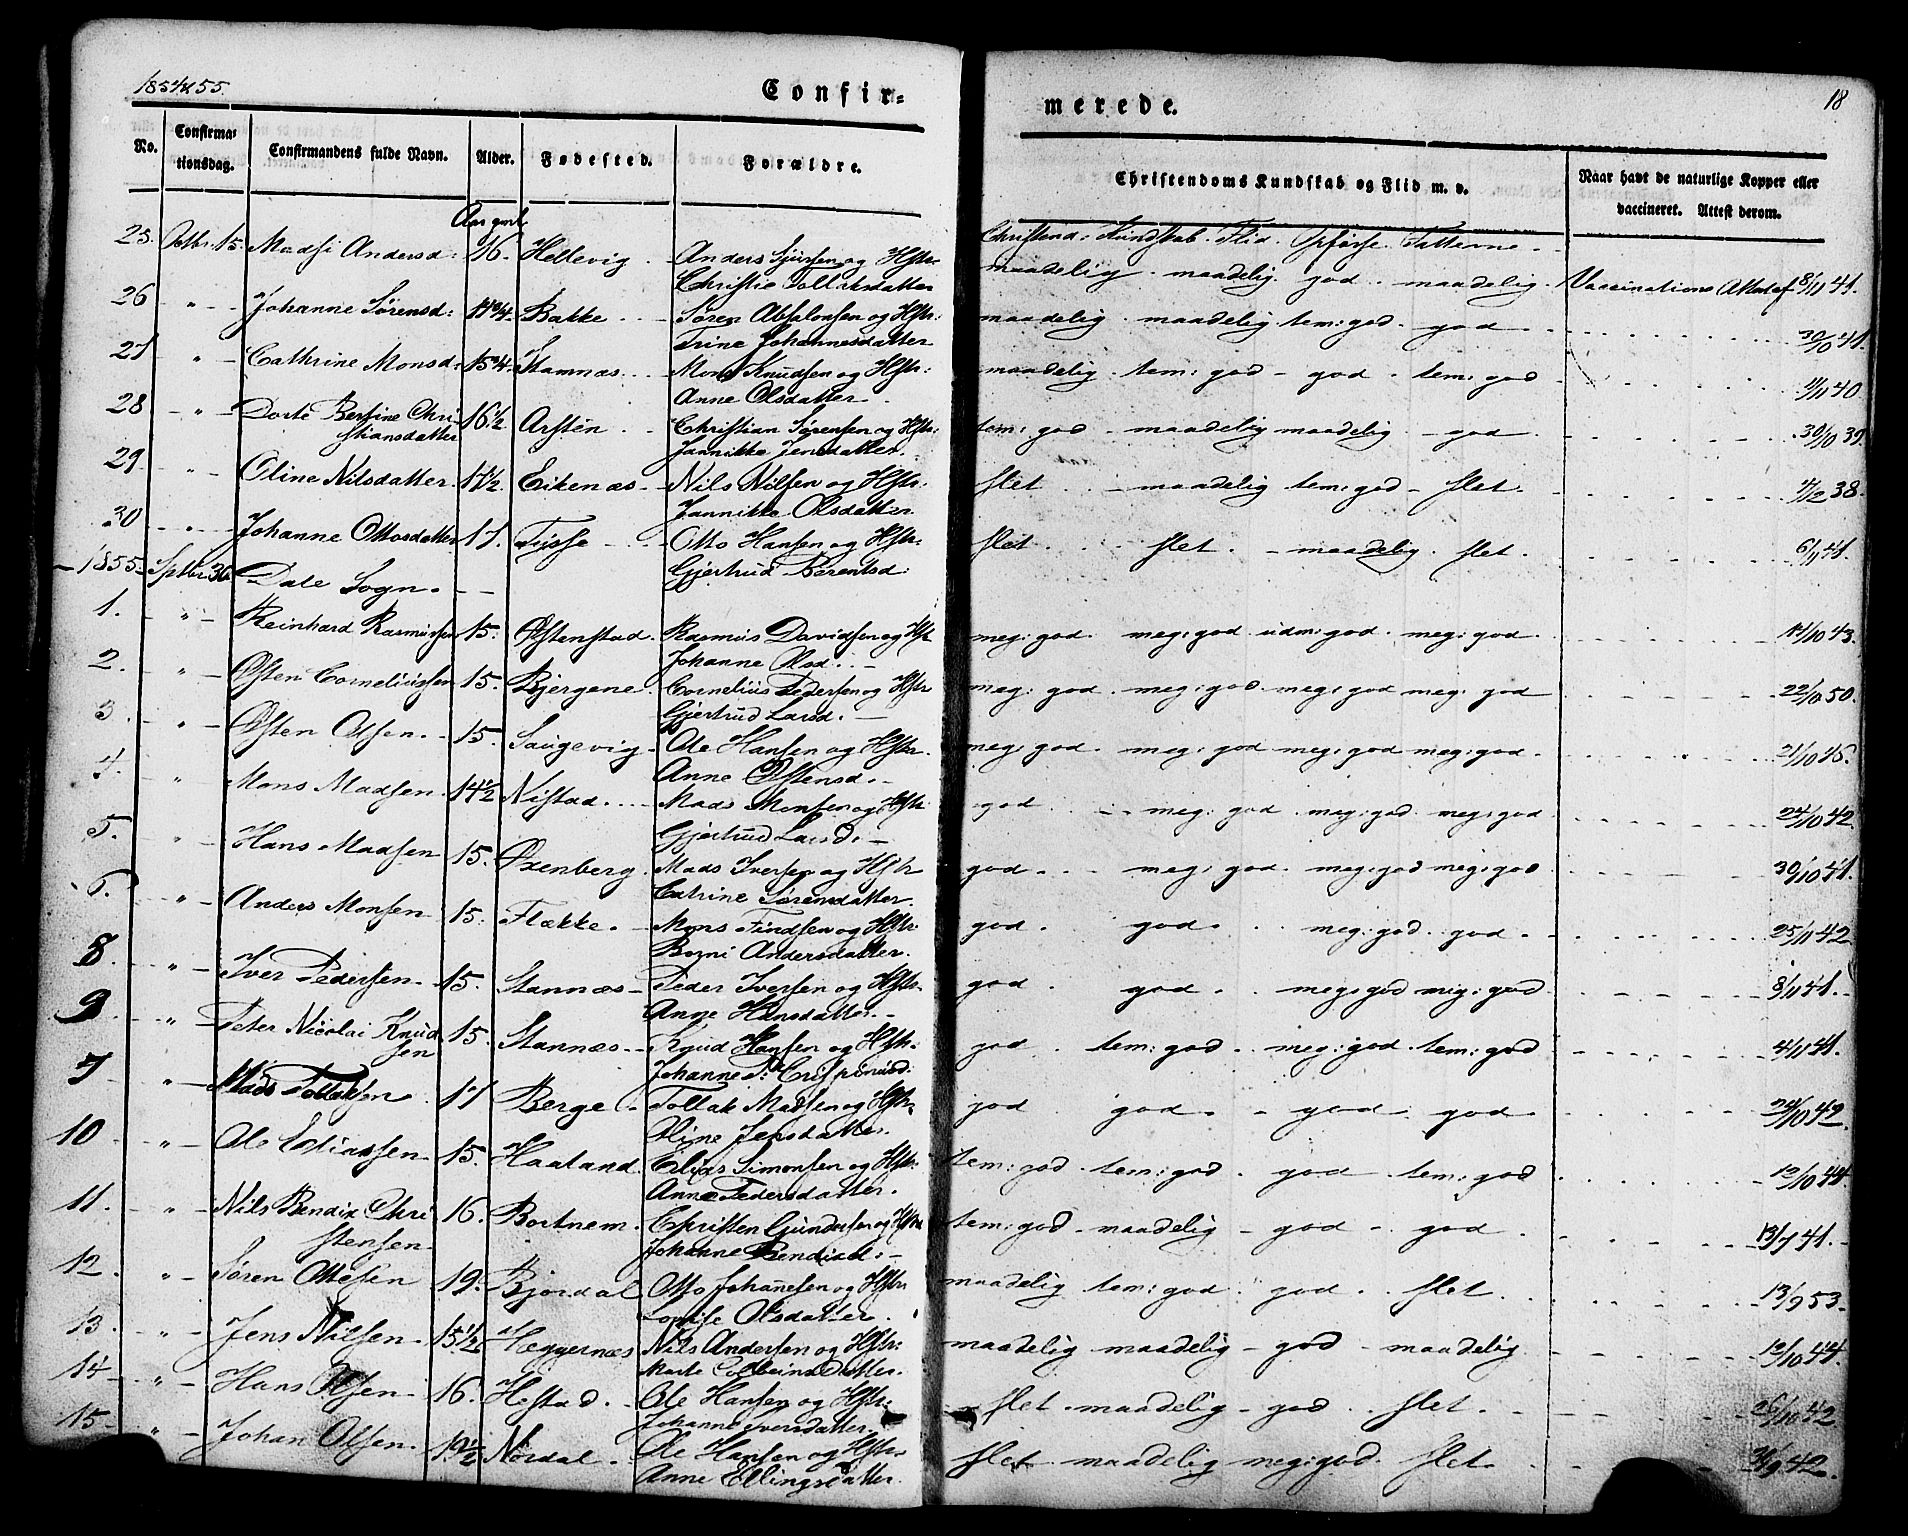 1854 & 55.
Confir-
merede.
18
No.
Confirma-
tionsdag.
Confirmandens fulde Navn.
Alder.
Fødested.
Forældre.
Christendoms Kundskab og Flid m. v.
Naar havt de naturlige Kopper eller
vaccineret. Attest derom.
Aar gml
Christend: Kundskab. Flid. Opførse. Fatterne
25. Octbr. 15. Madsi Andersd: 16. Hellevig Anders Sjursen og Hstr: maadelig. maadelig. god. maadelig. Vaccinations Attest af 8/11 41.
Christie Tollaksdatter
26 " Johanne Sørensd: Bakke Søren Absalonsen og Hstr: maadelig. maadelig tem: god. god 30/10 41.
Trine Johannesdatter
27 " Cathrine Monsd: 15 3/4. Stamnæs Mons Knudsen og Hstr: maadelig. tem: god - god. tem: god 40
Anne Olsdatter
28 " Dorte Bertine Chri- 16 1/2 Arsten Christian Sørensen og Hstr: tem: god - maadelig maadelig - god 30/10 39.
stiansdatter Jannikke Jensdatter
29 " Oline Nilsdatter. 17 1/2. Eikenæs Nils Nilsen og Hstr: slet - maadelig tem: god - slet. 38.
Jannikke Olsdatter
30 " Johanne Ottosdatter 17. Tysse Otto Hansen og Hstr: slet. slet. - maadelig. slet. 6/11 41.
Gjertrud Berentsd:
1855. Sptbr 30 Dale Sogn.
1. " Reinhard Rasmussen 15. Østenstad. Rasmus Davidsen og Hstr meg: god. meg: god udm: god. meg: god. 14/10 43.
Johanne Olsd.
2. " Østen Corneliussen 15. Bjergene. Cornelius Pedersen og Hstr meg: god. meg: god. meg: god meg: god 22/10 50.
Gjertrud Larsd.
3. " Østen Olsen. 15. Saugevig Ole Hansen og Hstr. meg: god. meg: god meg: god meg: god. 21/10 45.
Anne Østensd.
4. " Mons Madsen. 14 1/2 Nistad Mads Monsen og Hstr: god meg: god meg: god meg: god 24/10 42.
Gjertrud Larsd.
5. " Hans Madsen 15. Oxenberg. Mads Iversen og Hstr god. meg: god. meg: god meg: god 30/10 41.
Catrine Sørensdatter.
6. " Anders Monsen 15. Flække. Mons Findsen og Hstr god. god. meg: god. god. 25/11 42
Bogni Andersdatter.
8. " Iver Pedersen. 15. Stannæs Peder Iversen og Hstr. god. god. meg: god meg: god. 8/11 41.
Anne Hansdatter.
9. " Peter Nicolai Knud 15. Stannæs Knud Hansen og Hstr. god. tem: god. meg: god. tem: god 4/11 41.
sen Johanne
7 " Mads Tollaksen 17 Berge. Tollak Madsen og Hstr. god god. - god god. 24/10 42.
Oline Jensdatter.
10 " Ole Eliassen. 15. Haaland. Elias Simonsen og Hstr: tem: god. tem: god. god tem: god 12/10 44.
Anne Pedersdatter.
11. " Nils Bendix Chri 16. Bortnem. Christen Gundersen og Hstr tem: god - maadelig - god - god 13/7 41.
stensen Johanne Bendixd.
12. " Søren Ottesen 19. Bjordal Otto Johannesen og Hstr maadelig tem: god. god. slet. 13/9 53.
Lovise Olsdatter.
13. " Jens Nilsen. 15 1/2 Heggernæs Nils Andersen og Hstr: maadelig maadelig - god - maadelig 12/10 44.
Marte Colbeinsdatter.
14 " Hans Olsen. 16. Hestad. Ole Hansen og Hstr: slet. maadelig - god. slet. 26/10 42
Johanne Iversdatter
15. " Johan Olsen. 19 1/2 Nordal. Ole Hansen og Hstr. slet. maadelig meg: god. slet. 42.
Anne Ellingsdatter.